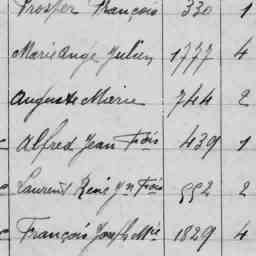 Prosper François 330 1
Marie Ange Julien 1777 4
Auguste Marie 744 2
Alfred Jean Fois 439 1
Laurent René Jn Fois 552 2
François Joseph Mie 1829 4